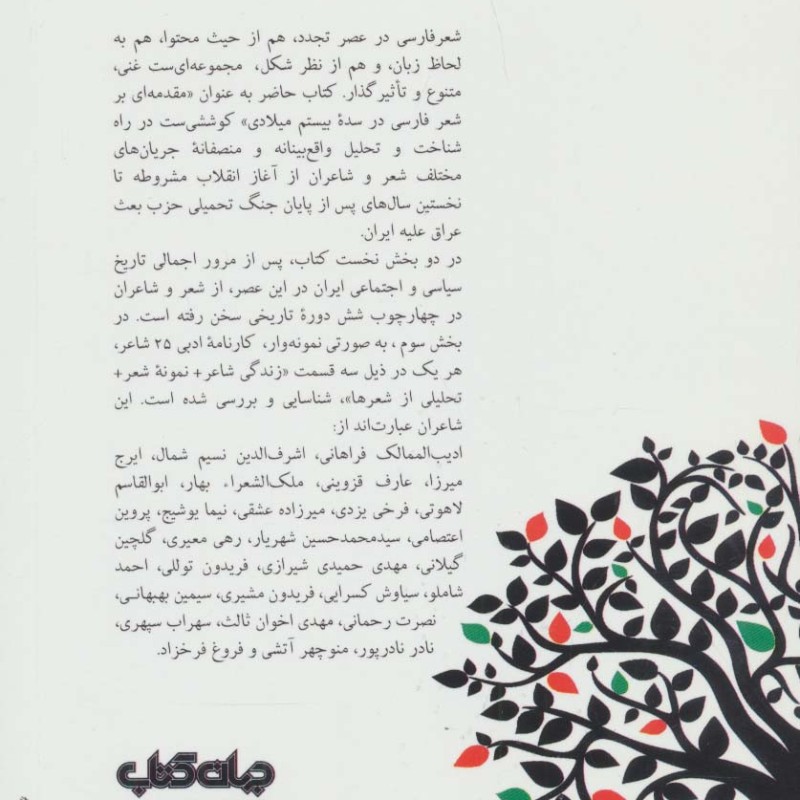 شعرفارسی در عصر تجدد، هم از حیث محتوا، هم به
لحاظ زبان، و هم از نظر شکل، مجموعه‌ای‌ست غنی،
متنوع و تأثیرگذار. کتاب حاضر به عنوان «مقدمه‌ای بر
شعر فارسی در سدهٔ بیستم میلادی» کوششی‌ست در راه
شناخت و تحلیل واقع‌بینانه و منصفانهٔ جریان‌های
مختلف شعر و شاعران از آغاز انقلاب مشروطه تا
نخستین سال‌های پس از پایان جنگ تحمیلی حزب بعث
عراق علیه ایران.
در دو بخش نخست کتاب، پس از مرور اجمالی تاریخ
سیاسی و اجتماعی ایران در این عصر، از شعر و شاعران
در چهارچوب شش دورهٔ تاریخی سخن رفته است. در
بخش سوم، به صورتی نمونه‌وار، کارنامهٔ ادبی ۲۵ شاعر،
هر یک در ذیل سه قسمت «زندگی شاعر+ نمونهٔ شعر+
تحلیلی از شعرها»، شناسایی و بررسی شده است. این
شاعران عبارت‌اند از:
ادیب‌الممالک فراهانی، اشرف‌الدین نسیم شمال، ایرج
میرزا، عارف قزوینی، ملک‌الشعراء بهار، ابوالقاسم
لاهوتی، فرخی یزدی، میرزاده عشقی، نیما یوشیج، پروین
اعتصامی، سیدمحمدحسین شهریار، رهی معیری، گلچین
گیلانی، مهدی حمیدی شیرازی، فریدون توللی، احمد
شاملو، سیاوش کسرایی، فریدون مشیری، سیمین بهبهانی،
نصرت رحمانی، مهدی اخوان ثالث، سهراب سپهری،
نادر نادرپور، منوچهر آتشی و فروغ فرخزاد.
جهان کتاب